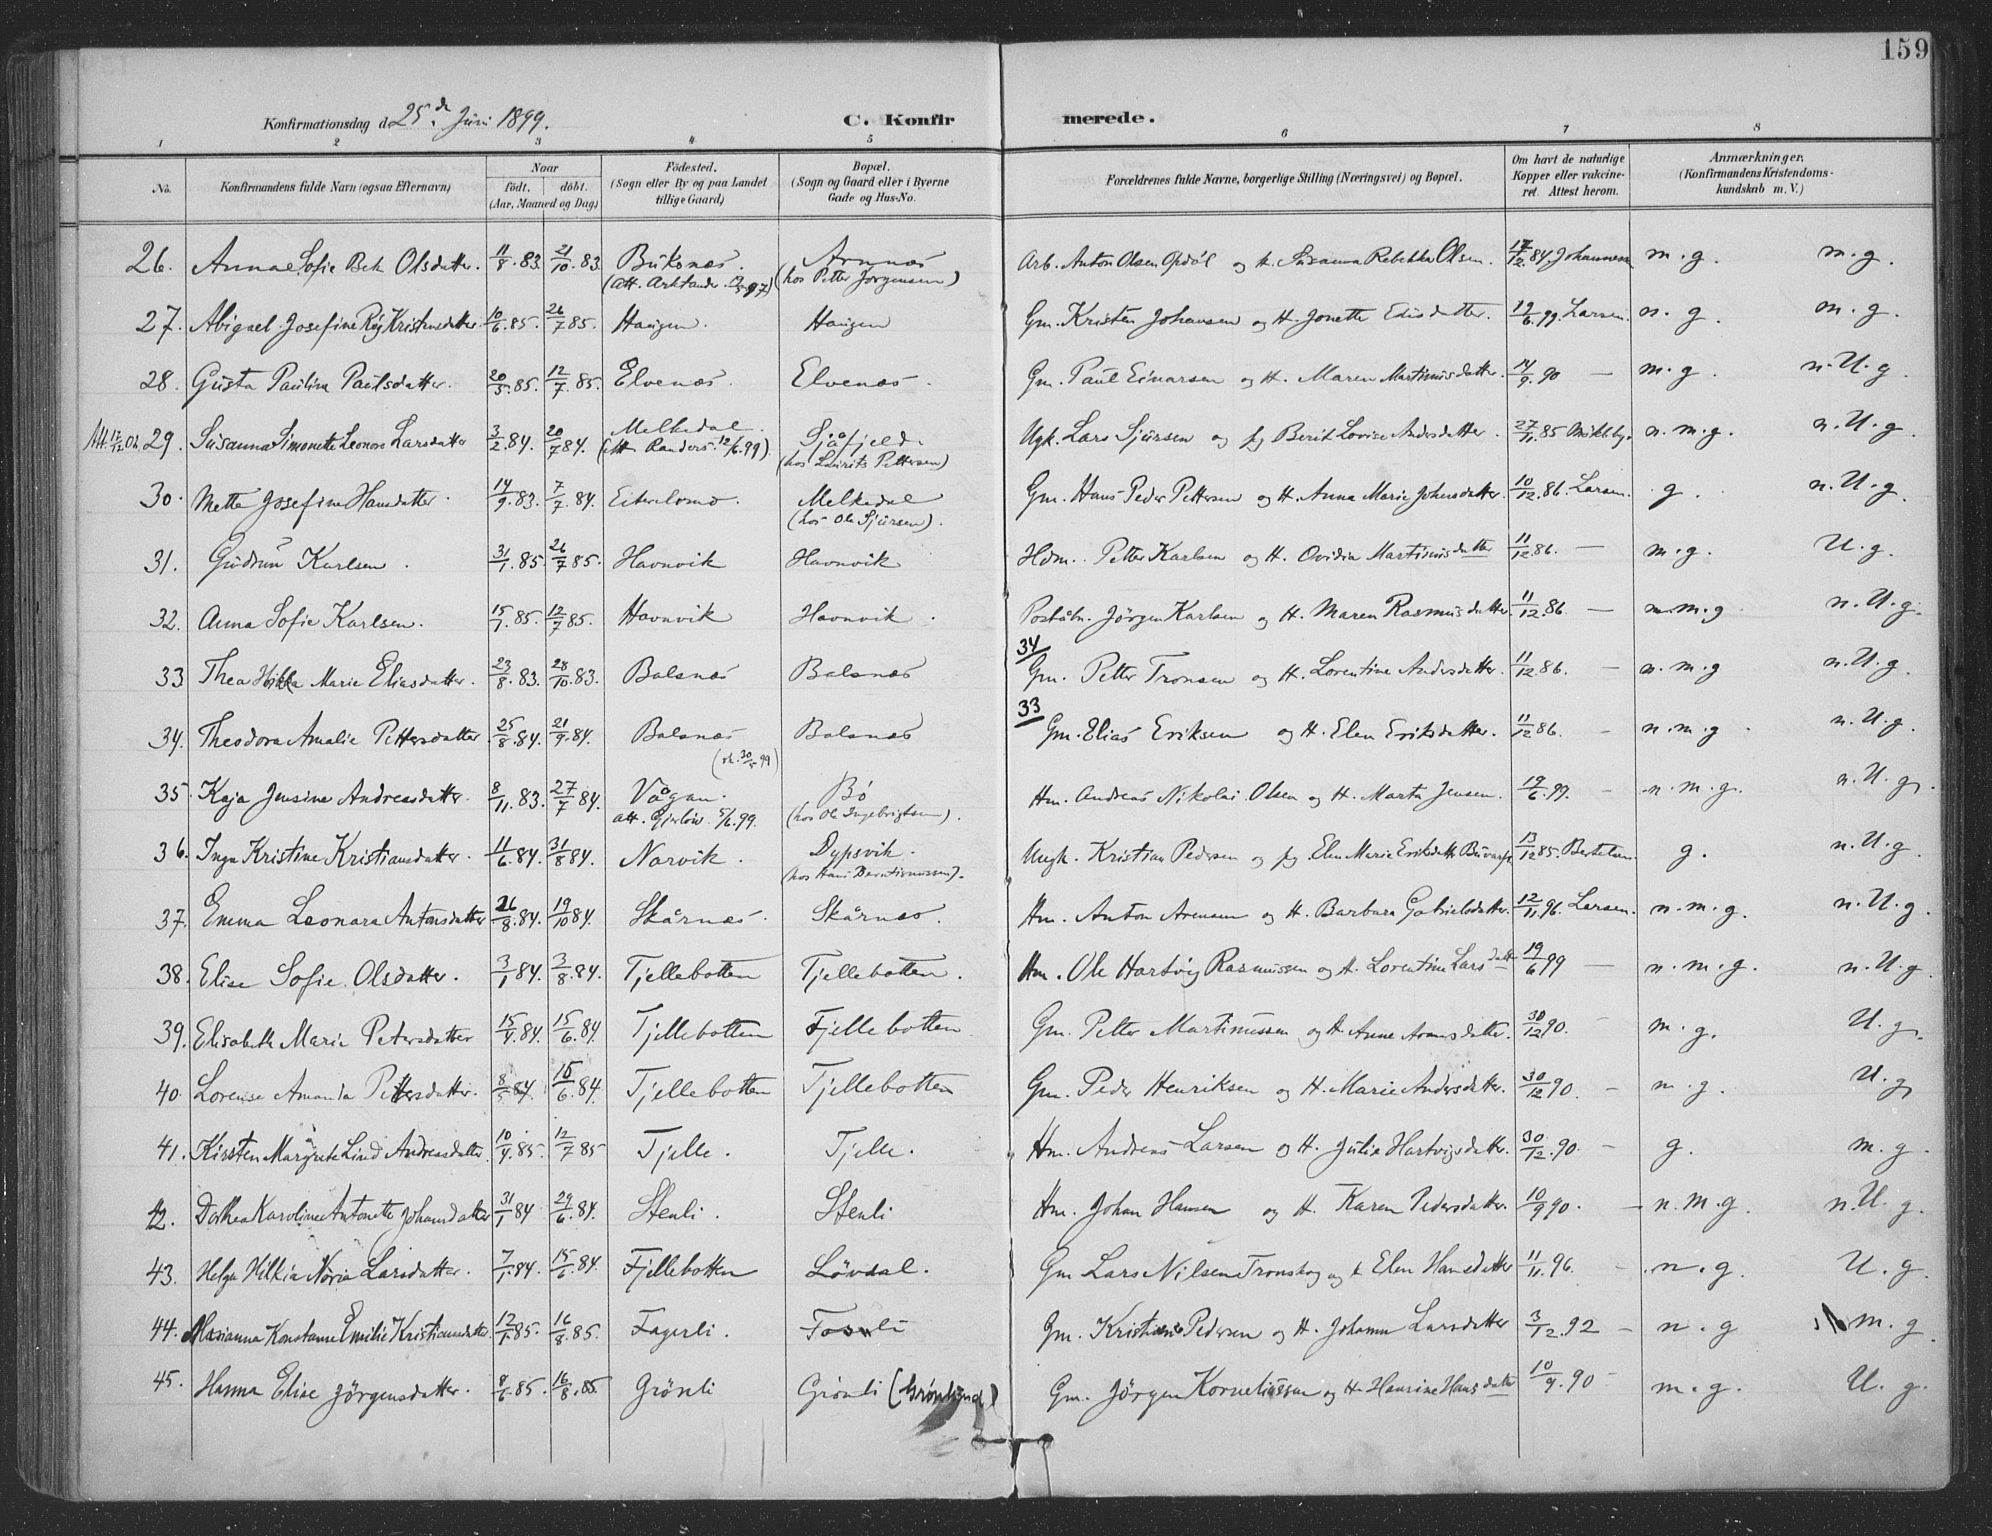 159
Konfirmationsdag d. 25de Juni 1899.
C. Konfirmerede.
1 2 3 4 5 6 7 8
No.
Konfirmandens fulde Navn (ogsaa Efternavn)
Naar
født. døbt.
(Aar, Maaned og Dag)
Födested.
(Sogn eller By og paa Landet
tillige Gaard)
Bopæl.
(Sogn og Gaard eller i Byerne
Gade og Hus-No.
Forældrenes fulde Navne, borgerlige Stilling (Næringsvei) og Bopæl.
Om havt de naturlige
Kopper eller vakcine-
ret. Attest herom.
Anmærkninger,
(Konfirmandens Kristendoms-
kundskab m. V.)
26. Anna Sofie Olsdatter. 11/8.83. 21/10.83. Buksnæs. Arnnæs Arb. Anton Olsen Opdøl og H. Susanna Rebekka Olsen. 17/12.84. Johannesen m.g. m.g.
(att. Arktander 97) (hos Petter Jørgensen)
27. Abigael Josefine Kristensdatter. 10/6.85. 26/7.85. Haugen. Haugen Gm. Kristen Johansen og H. Jonette Edisdatter. 19/6.99. Larsen. n.g. m.g.
28. Gusta Pauline Paulsdatter. 20/5.85. 12/7.85. Elvenæs. Elvenæs. Gm. Paul Einarsen og H. Maren Martinusdatter. 14/9.90 — m.g. n.U.g.
29. Susanna Simonette Leonore Larsdatter 3/2.84. 20/7.84. Melkedal. Sjåfjeld. Ugk. Lars Sjursen og Pg Berit Lovise Andersdatter. 27/11.85 Mikleby. n.m.g. n.U.g.
(Att. Randers 12/6.99) (hos Laurits Pettersen)
30. Mette Josefine Hansdatter. 14/9.83. 7/7.84. Melkedal Gm. Hans Peder Pettersen og H. Anna Marie Johansdatter. 10/12.86. Larsen. g. n.U.g.
(hos Ole Sjursen).
31. Gudrun Karlsen. 31/1.85. 26/7.85. Havnvik Havnvik Hdm. Petter Karlsen og H. Ovidia Martinusdatter 11/12.86. — m.g. U.g.
32. Anna Sofie Karlsen. 15/1.85. 12/7.85. Havnvik Havnvik. Poståbn. Jörgen Karlsen og H. Maren Rasmusdatter 11/12.86. — n.m.g n.U.g.
33 Thea Marie Eliasdatter. 23/8.83. 28/10.83. Balsnæs Balsnæs 34 Gm. Petter Tronsen og H. Lorentine Andersdatter. 11/12.86. — n.m.g n.U.g.
34. Theodora Amalie Pettersdatter. 25/8.84. 21/9.84. Balsnæs Balsnæs 33 Gm. Elias Eriksen og H. Elen Eriksdatter. 11/12 86. - n.m.g. n.U.g.
35. Kaja Jensine Andreasdatter. 8/11.83. 27/7.84. Vågan. Bö Hm. Andreas Nikolai Olsen og H. Marta Jensen. 19/6.99. — n.m.g. n.U.g.
att. Gjerlöw. 5/6.99. (hos Ol. Ingebrigtsen).
36. Inga Kristine Kristiansdatter. 11/6.84. 31/8.84. Narvik. Dypsvik. Ungk. Kristian Pedersen og Pg. Elen Marie Eriksdatter 13/12.85. Bertelsen. g. n.U.g.
37. Emma Leonara Antonsdatter 26/8.84. 19/10.84. Skårnæs. Skårnæs. Hm. Anton Arensen og H. Barbara Gabrielsdatter. 12/11.96. Larsen. n.m.g. n.U.g.
38. Elise Sofie Olsdatter. 3/1.84. 3/8.84. Tjellebotten Tjellebotten. Hm. Ole Hartvig Rasmussen og H. Lorentine Larsdatt 19/6 99 — n.m.g. n.U.g.
39. Elisabeth Marie Petersdatter 15/4.84. 15/6.84. Tjellebotten Fjellebotten Gm. Petter Martinussen og H. Anne datter. 30/12.90. - m.g. U.g.
40. Lorense Amanda Pettersdatter. 8/5.84. 15/6.84. Tjellebotten Tjellebotten Gm. Peder Henriksen og H. Marie Andersdatter. 30/12.90. - m.g. U.g.
41. Kirsten Margrete Lind Andreasdatter. 10/4.85. 12/7.85 Tjelle. Tjelle. Hm. Andreas Larsen og H. Julie Hartvigsdatter. 30/12.90. - g. m.g.
42. Dorthea Karoline Antonette Johansdatter 31/1.84 29/6.84. Stenli. Stenli Hm. Johan Hansen og H. Karen Pedersdatter. 10/9.90. - n.m.g. n.U.g.
43. Helga Hilkia Larsdatter. 7/1.84. 15/6.84. Fjellebotten Lövdal. Gm. Lars Nilsen Tronskog og H. Elen Hansdatter 11/11.96. - n.g. U.g.
44. Marianna Konstanse Emilie Kristiansdatter 12/1.85. 16/8.85. Fagerli. Fosli Gm. Kristian Pedersen og H. Johanna Larsdatter 3/12.92 - n.g m.g.
45. Hanna Elise Jörgensdatter. 8/6.85. 16/8.85 Grönli Grönli (Grønlund) Gm. Jörgen Korneliussen og H. Hansine Hansdatter 10/9.90 - m.g. U.g.